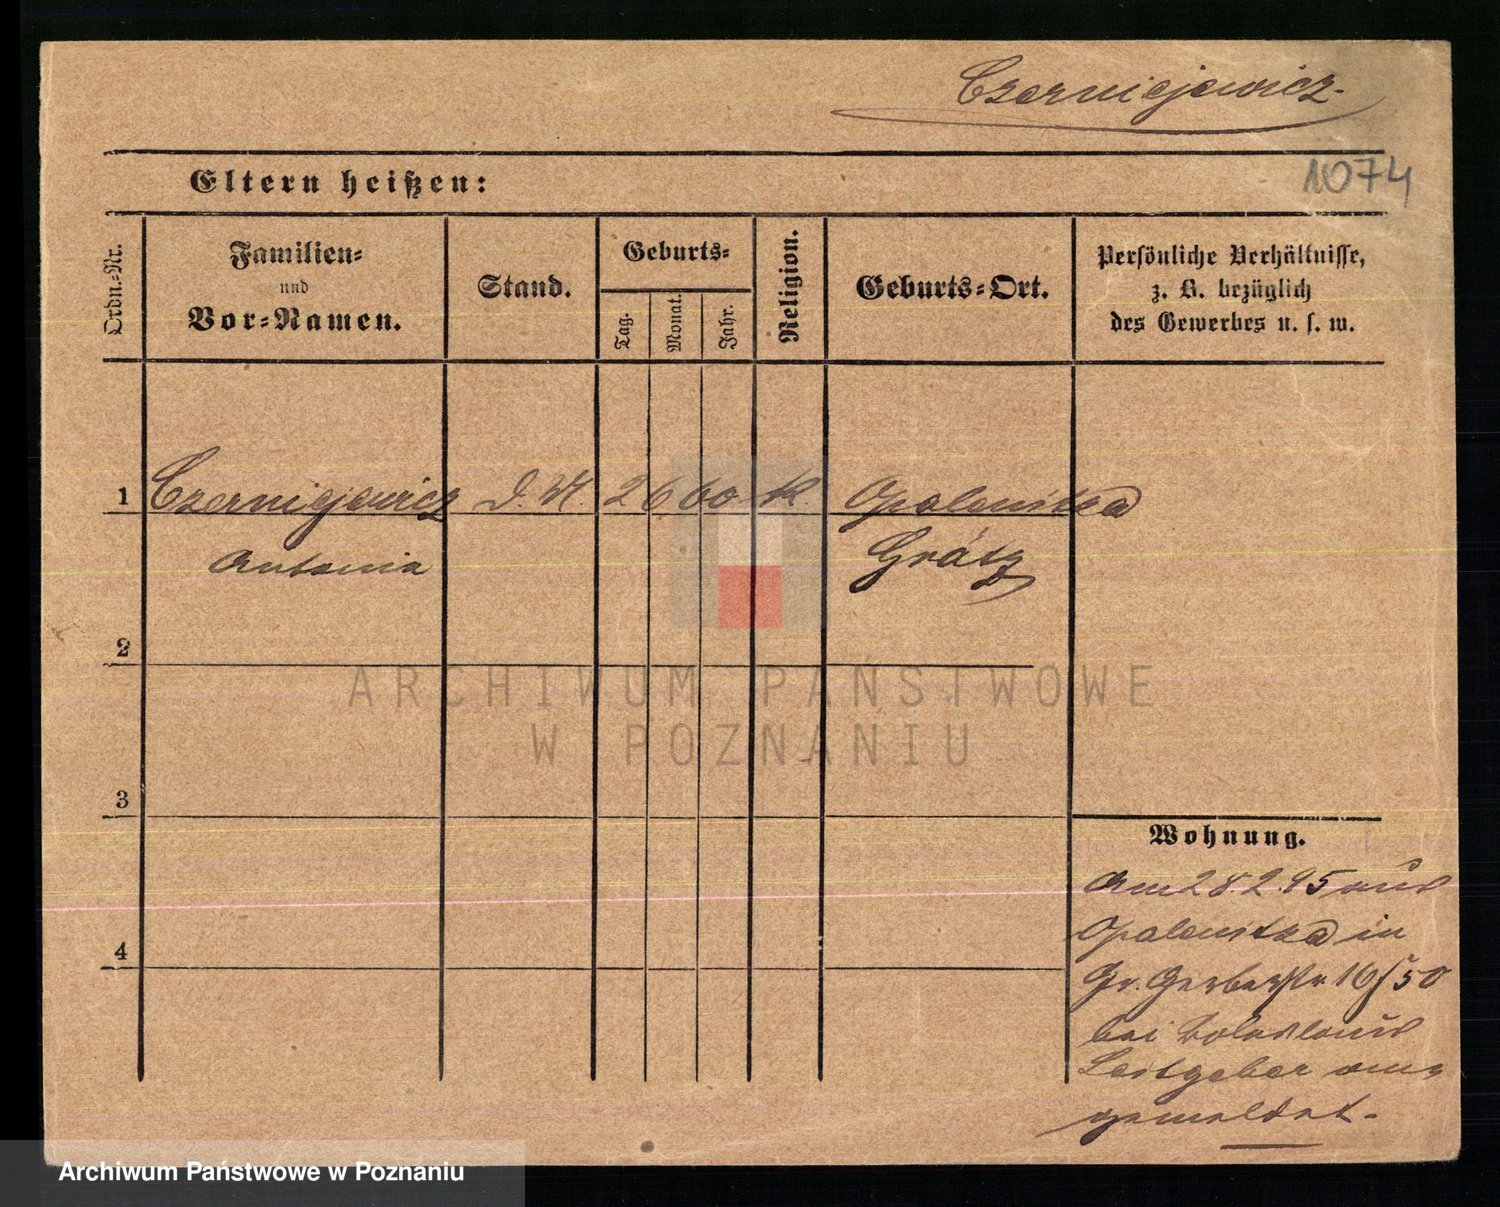 Czerniejewicz
1074
Eltern heißen:
Ordn.=Nr.
Familien=
und
Vor=Namen.
Stand.
Geburts=
Tag.
Monat.
Jahr.
Religion.
Geburts=Ort.
Persönliche Verhältnisse,
z. B. bezüglich
des Gewerbes u. s. w.
1 Czerniejewicz D. M. 2 6 60 K. Opalenitza
Antonia Grätz
2
ARCHIWUM PAŃSTWOWE
W POZNANIU
3
Wohnung.
Am 28.2.95 aus
Opalenitza in
4
Gr. Gerberstr 16/50
bei Boleslaus
Leitgeber an=
gemeldet.
Archiwum Państwowe w Poznaniu